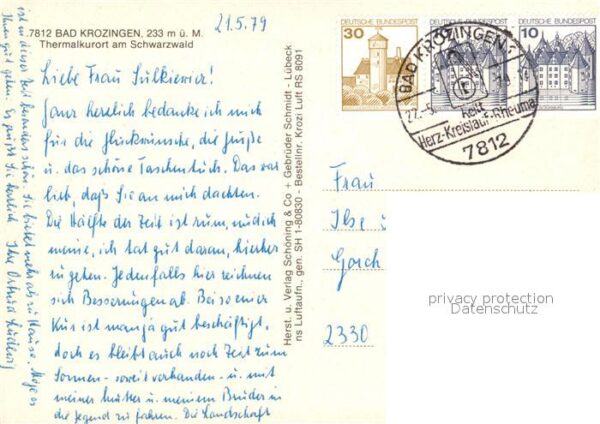 7812 BAD KROZINGEN, 233 m ü. M.
Thermalkurort am Schwarzwald
21.5.79
Liebe Frau Sulkiewicz!
Ganz herzlich bedanke ich mich
für die Glückwünsche, die Grüße
u. das schöne Taschentuch. Das war
lieb, daß Sie an mich dachten.
Die Hälfte der Zeit ist rum, und ich
meine, ich tat gut daran, hierher
zu gehen. Jedenfalls hier zeichnen
sich Besserungen ab. Bei so einer
Kur ist man ja gut beschäftigt,
doch es bleibt auch noch Zeit zum
Sonnen - soweit vorhanden - u. mit
meiner Mutter u. meinem Bruder in
die Gegend zu fahren. Die Landschaft
ist in dieser Zeit besonders schön. Sie bietet mehr als zu Hause. Möge es
Ihnen gut gehen. Es grüßt Sie herzlich Ihre
Herst. u. Verlag Schöning & Co + Gebrüder Schmidt - Lübeck
ns Luftaufn., gen. SH 1-80830 - Bestellnr. Krozi Luft RS 8091
DEUTSCHE BUNDESPOST
30
DEUTSCHE BUNDESPOST
DEUTSCHE BUNDESPOST
10
BAD KROZINGEN
Herz-Kreislauf-Rheuma
7812
Frau
Ilse
2330
privacy protection
Datenschutz